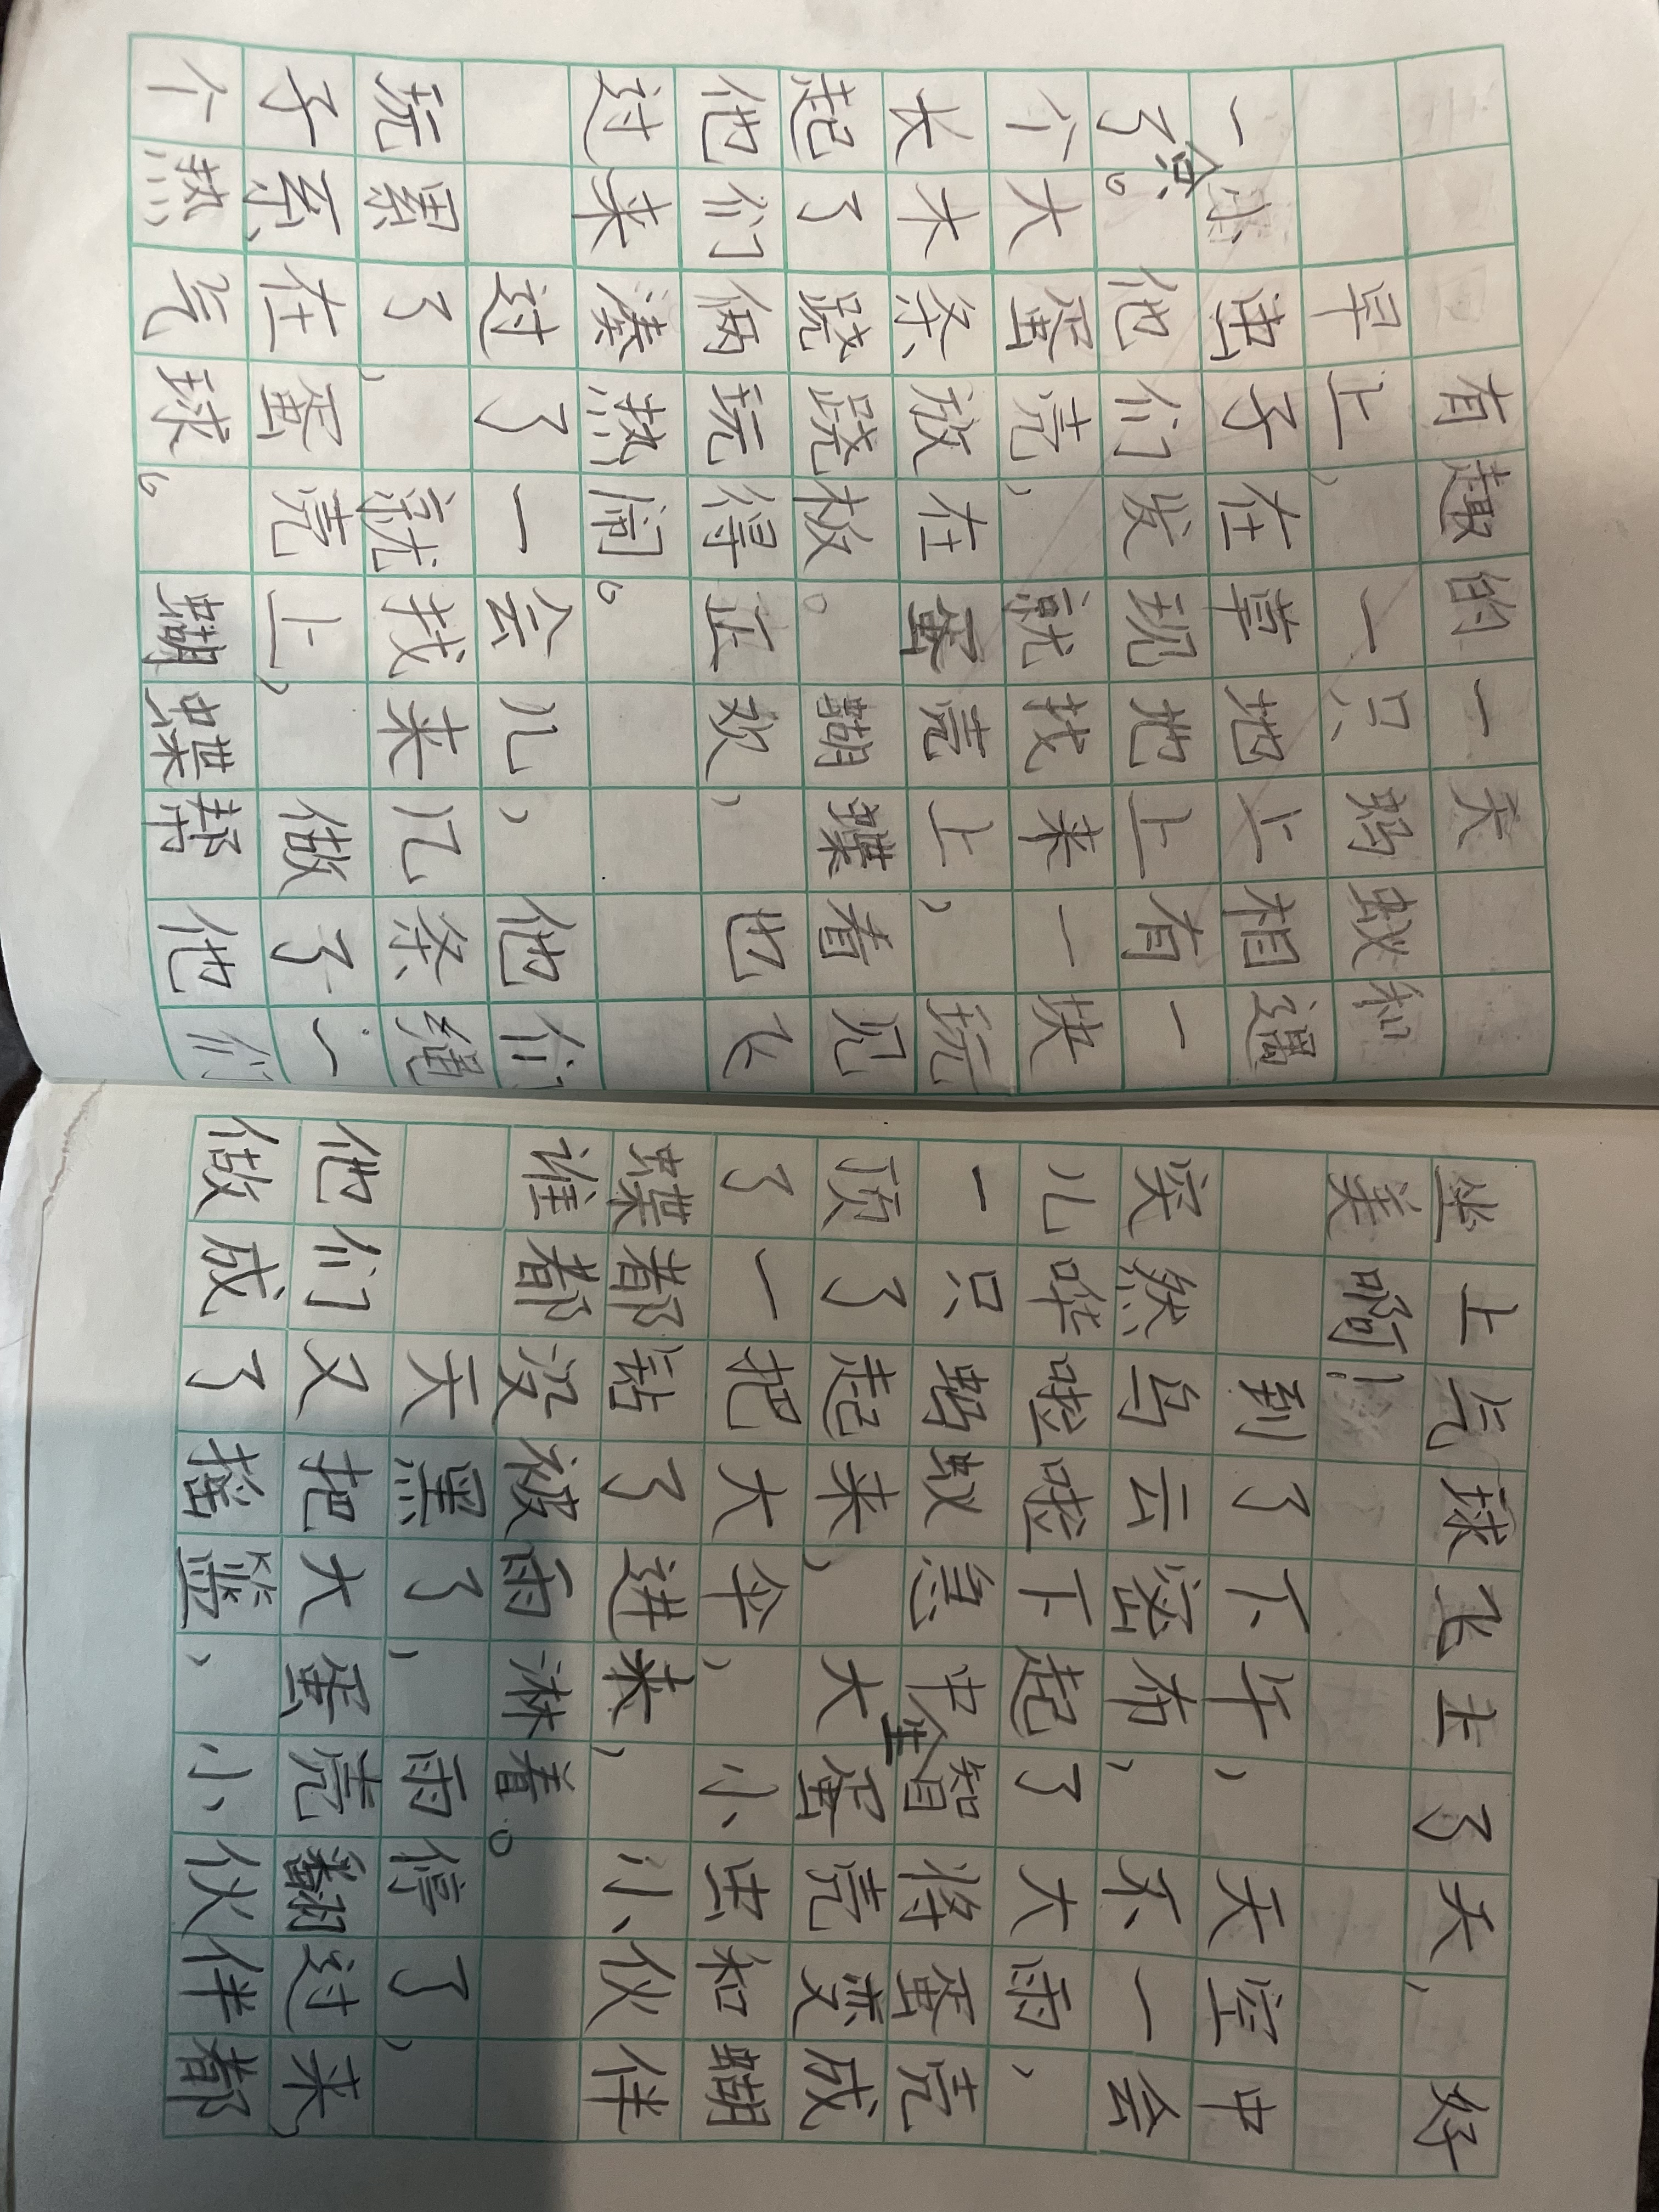 有趣的一天
早上，一只蚂蚁和
一只小虫子在草地上相遇
了。他们发现地上有一
个大蛋壳，就找来一块
长木条放在蛋壳上，玩
起了跷跷板。蝴蝶看见
他们俩玩得正欢，也飞
过来凑热闹。
过了一会儿，他们
玩累了，就找来几条绳
子系在蛋壳上，做了一
个热气球。蝴蝶帮他们
坐上气球飞上了天，好
美啊！
到了下午，天空中
突然乌云密布，不一会
儿哗啦啦下起了大雨，
一只蚂蚁急中生智将蛋壳
顶了起来，大蛋壳变成
了一把大伞，小虫和蝴
蝶都钻了进来，小伙伴
谁都没被雨淋着。
天黑了，雨停了，
他们又把大蛋壳翻过来，
做成了摇篮，小伙伴都